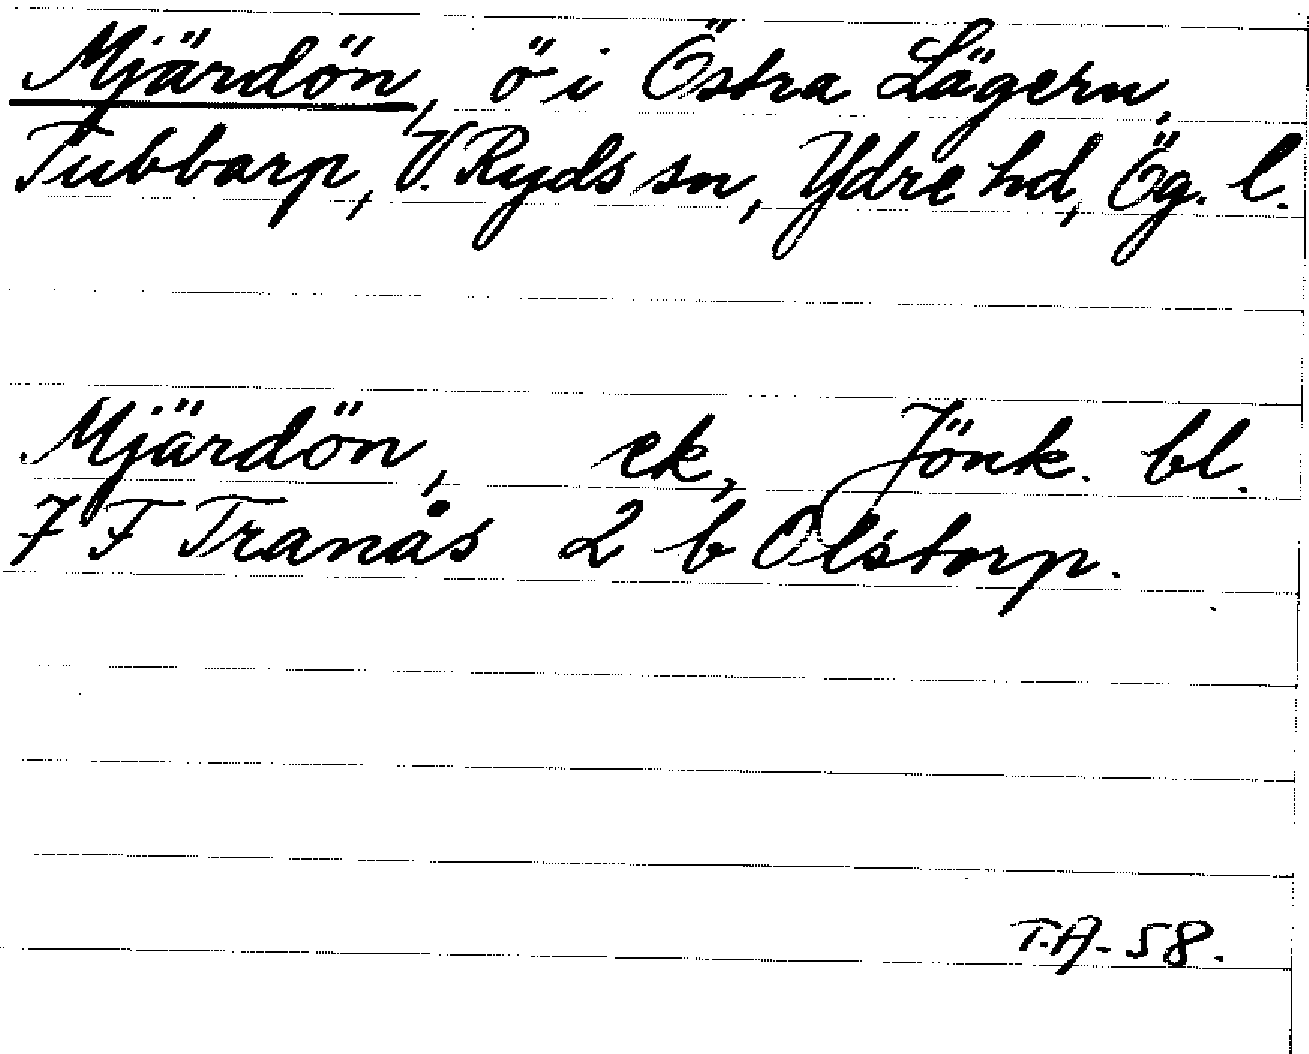 Mjärdön, ö i Östra Lägern,
Tubbarp, V. Ryds sn, Ydre hd, Ög. l.
Mjärdön, ek, Jönk. bl.
7 F Tranås 2 b Olstorp.
T.A. 58.